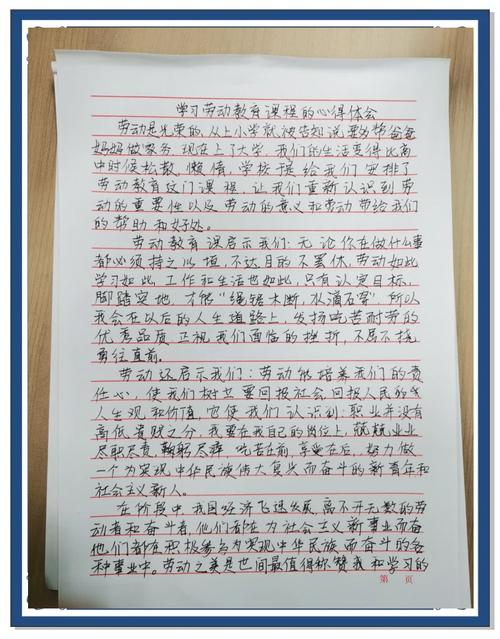 学习劳动教育课程的心得体会
劳动是光荣的,从上小学就被告知说要多帮爸爸
妈妈做家务.现在上了大学,我们的生活变得比高
中时候松散、懒惰,学校 给我们安排了
劳动教育这门课程,让我们重新认识到劳
动的重要性以及劳动的意义和劳动带给我们
的帮助和好处。
劳动教育课启示我们:无论你在做什么事
都必须持之以恒,不达目的不罢休,劳动如此
学习如此,工作和生活也如此,只有认定目标,
脚踏实地,才能“绳锯木断,水滴石穿”,所以
我会在以后的人生道路上,发扬吃苦耐劳的
优秀品质,正视我们面临的挫折,不屈不挠
勇往直前。
劳动还启示我们:劳动能培养我们的责
任心,使我们树立要回报社会回报人民的
人生观和价值,它使我们认识到:职业并没有
高低贵贱之分,我要在我自己的岗位上,兢兢业业
尽职尽责,鞠躬尽瘁,吃苦在前,享受在后,努力做
一个为实现中华民族伟大复兴而奋斗的新青年和
社会主义新人。
在 段中,我国经济飞速发展,离不开无数的劳
动者和奋斗者,他们都在为社会主义新事业而奋
他们都在积极参与为实现中华民族而奋斗的各
种事业中。劳动之美是世间最值得称赞我和学习的
第 页